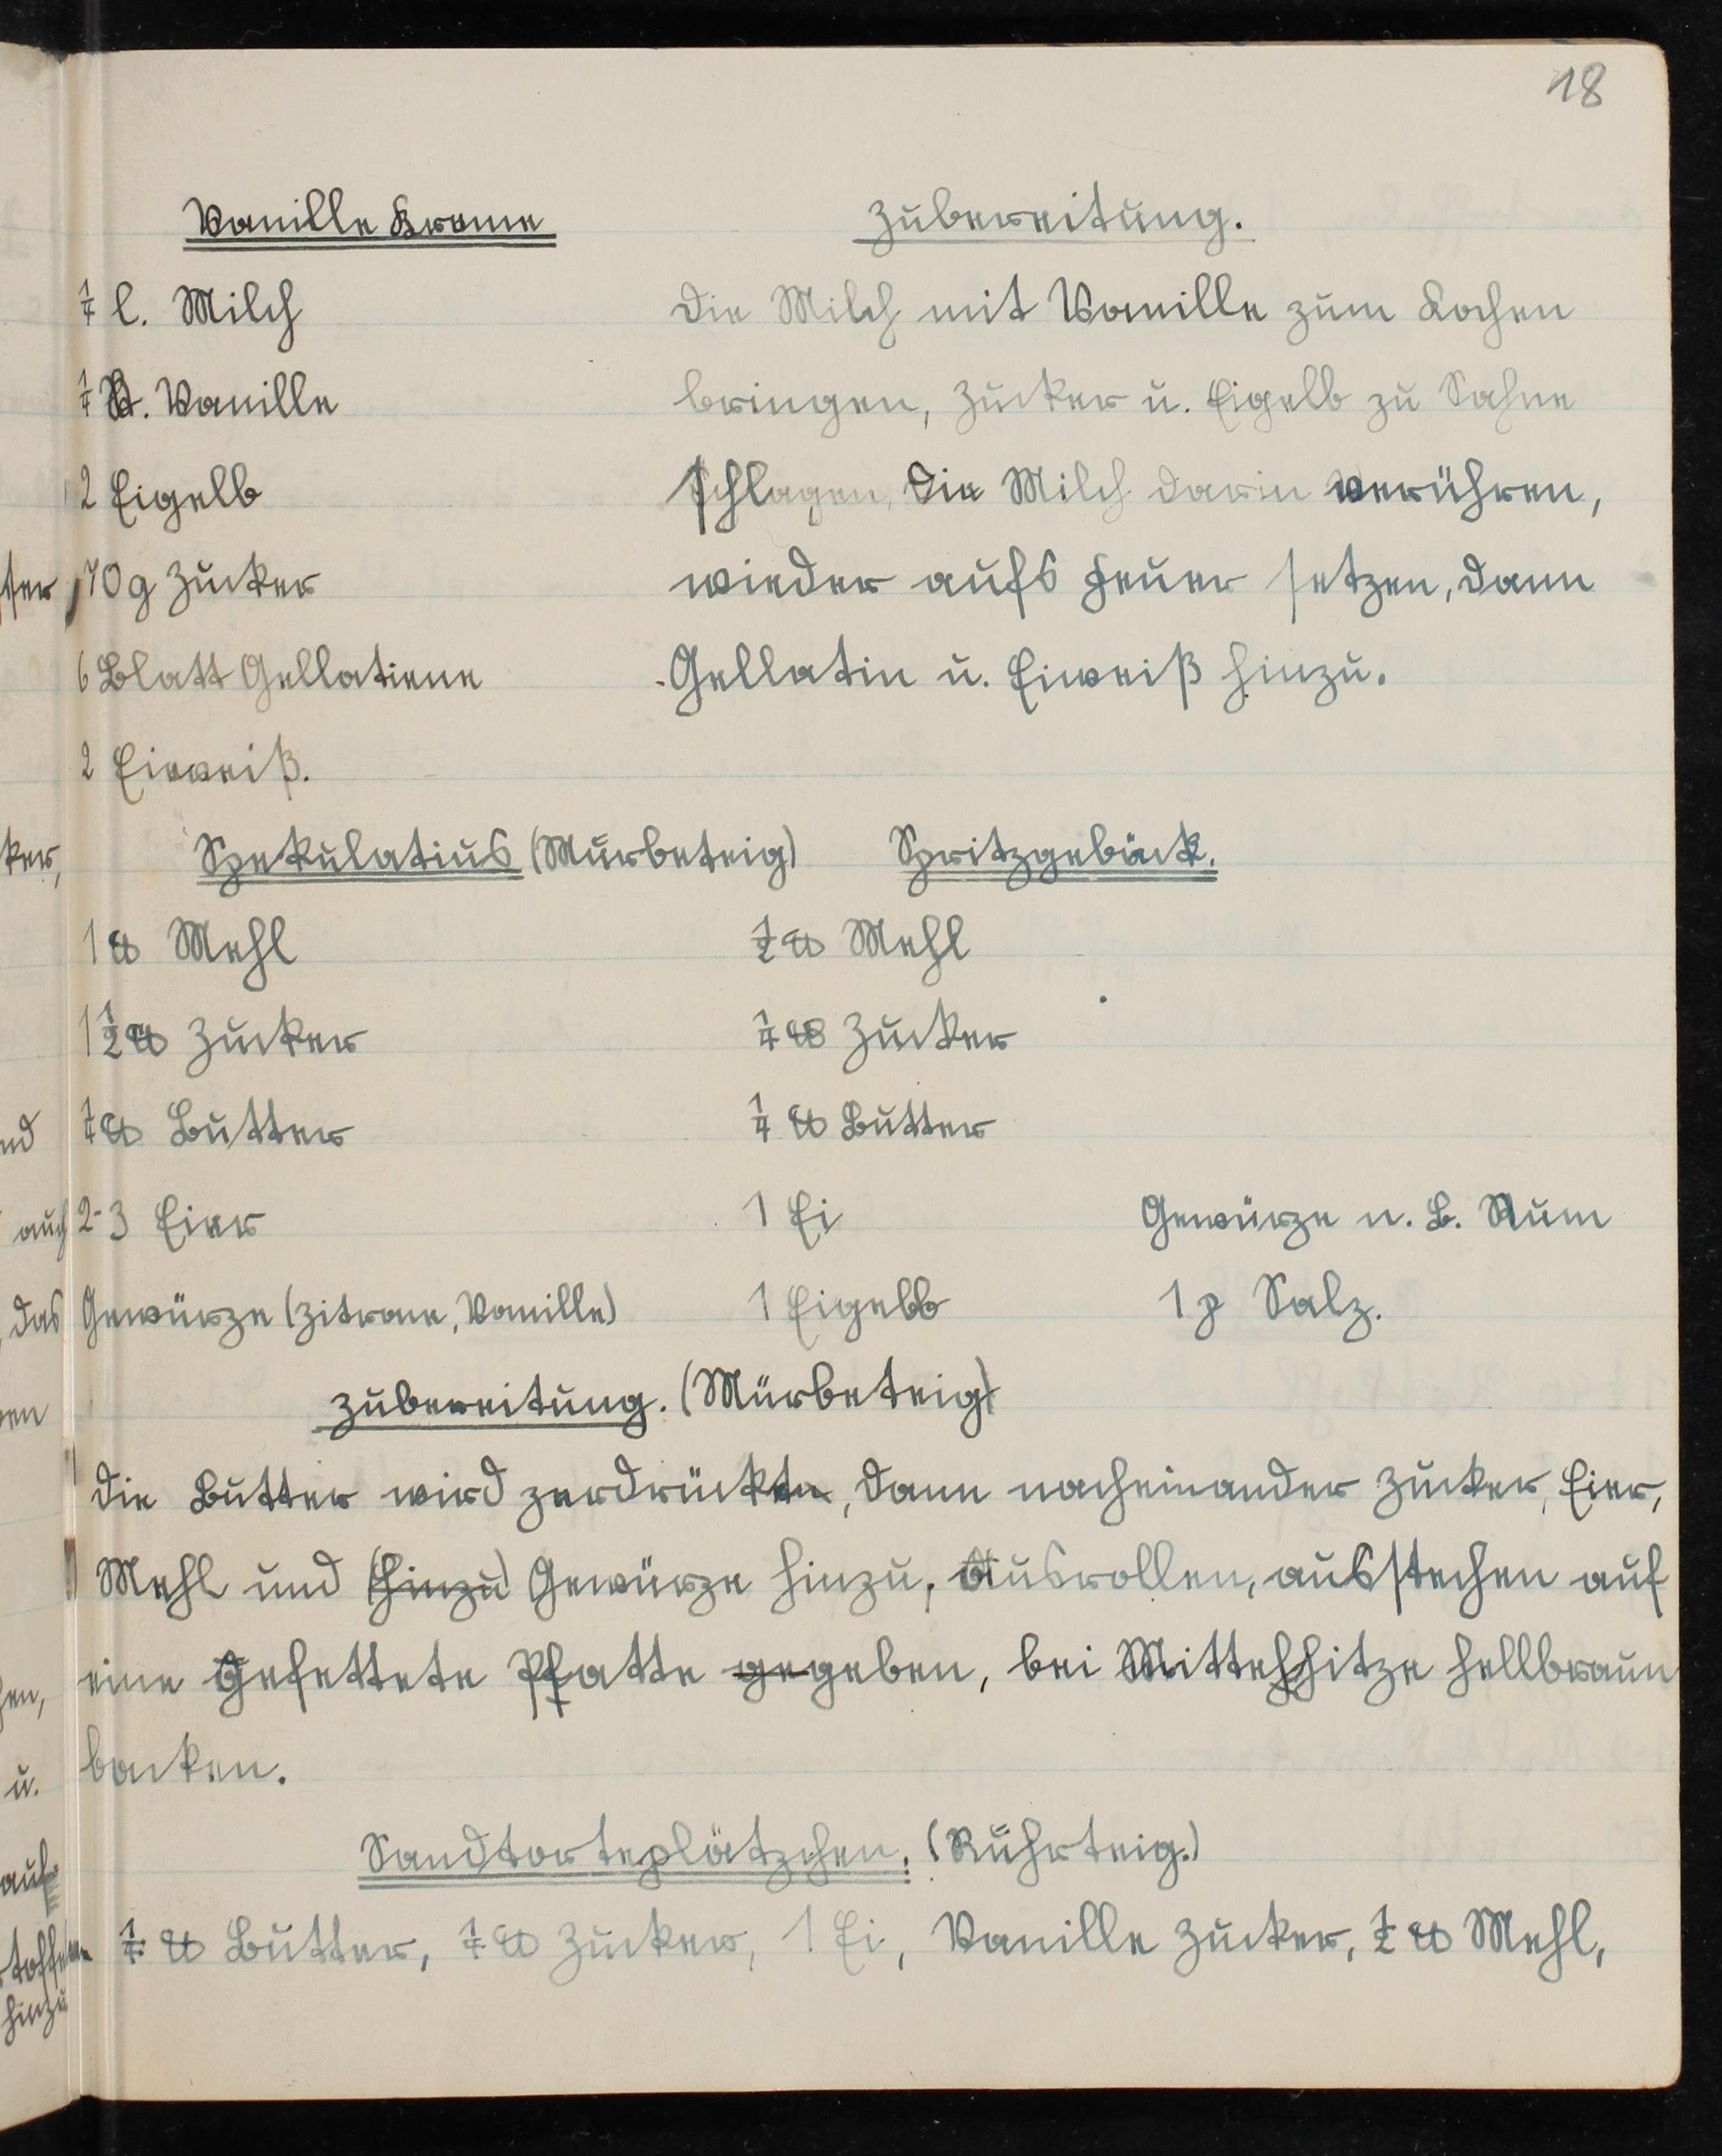 18
Vanille Kreme
¼ l. Milch
¼ St. Vanille
2 Eigelb
70 g Zucker
6 Blatt Gellatiene
2 Eiweiß.
Zubereitung.
Die Milch mit Vanille zum Kochen
bringen, Zucker u. Eigelb zu Sahne
schlagen, die Milch darin verühren,
wieder aufs Feuer setzen, dann
Gellatin u. Eiweiß hinzu.
Spekulatius (Mürbeteig)
1 ℔ Mehl
1½ ℔ Zucker
¼ ℔ Butter
2-3 Eier
Gewürze (Zitrone, Vanille)
Spritzgebäck.
½ ℔ Mehl
¼ ℔ Zucker
¼ ℔ Butter
1 Ei
1 Eigelb
Gewürze n. B. Rum
1 P Salz.
Zubereitung. (Mürbeteig)
Die Butter wird zerdrückt, dann nacheinander Zucker, Eier,
Mehl und (hinzu) Gewürze hinzu, Ausrollen, ausstechen auf
eine Gefettete Platte ge geben, bei Mittelhitze hellbraun
backen.
Sandtorteplätzchen. (Rührteig.)
¼ ℔ Butter, ¼ ℔ Zucker, 1 Ei, Vanille Zucker, ½ ℔ Mehl,
ker,
nd
auch
das
u.
auf
hinzu